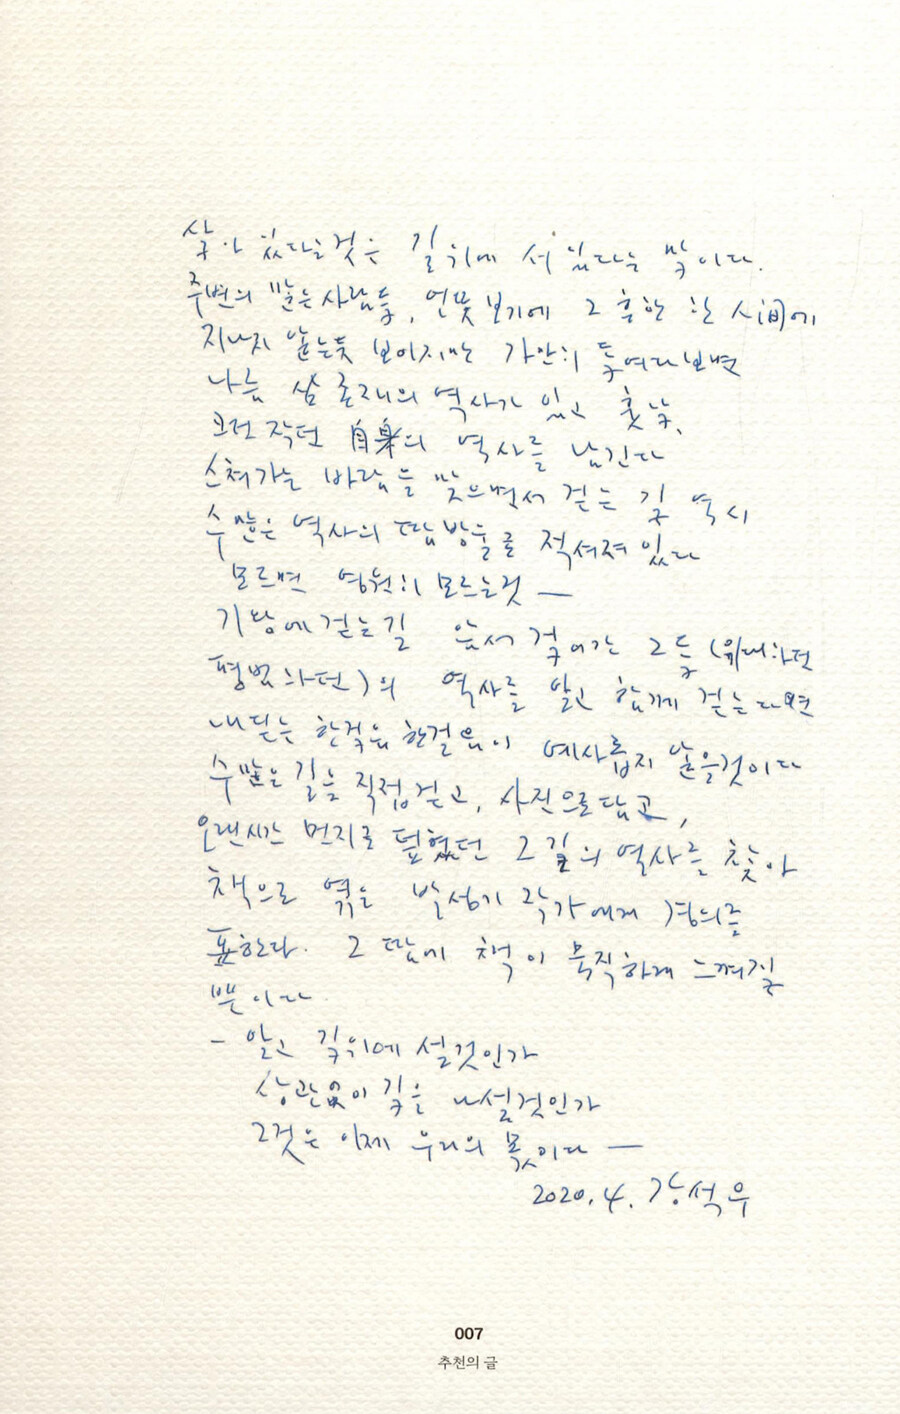 살아 있다는것은 길위에 서 있다는 말이다.
주변의 많은 사람들, 언뜻 보기에 그 흔한 한 시間에
지나지 않는듯 보이지만 가만히 들여다보면
나름 삶 존재의 역사가 있고 훗날,
크던 작던 自身의 역사를 남긴다
스쳐가는 바람을 맞으면서 걷는 길 역시
수많은 역사의 땀방울로 적셔져 있다
모르면 영원히 모르는것 —
기왕에 걷는길 앞서 걸어간 그들 (위대하던
평범하던) 의 역사를 알고 함께 걷는다면
내딛는 한걸음 한걸음이 예사롭지 않을것이다
수많은 길을 직접걷고, 사진으로 담고,
오랜시간 먼지로 덮혔던 그 길의 역사를 찾아
책으로 엮은 박성기 작가에게 경의를
표한다. 그 땀에 책이 묵직하게 느껴질
뿐이다.
- 알고 길위에 설것인가
상관없이 길을 나설것인가
그것은 이제 우리의 몫이다 —
2020. 4. 강석우
007
추천의 글